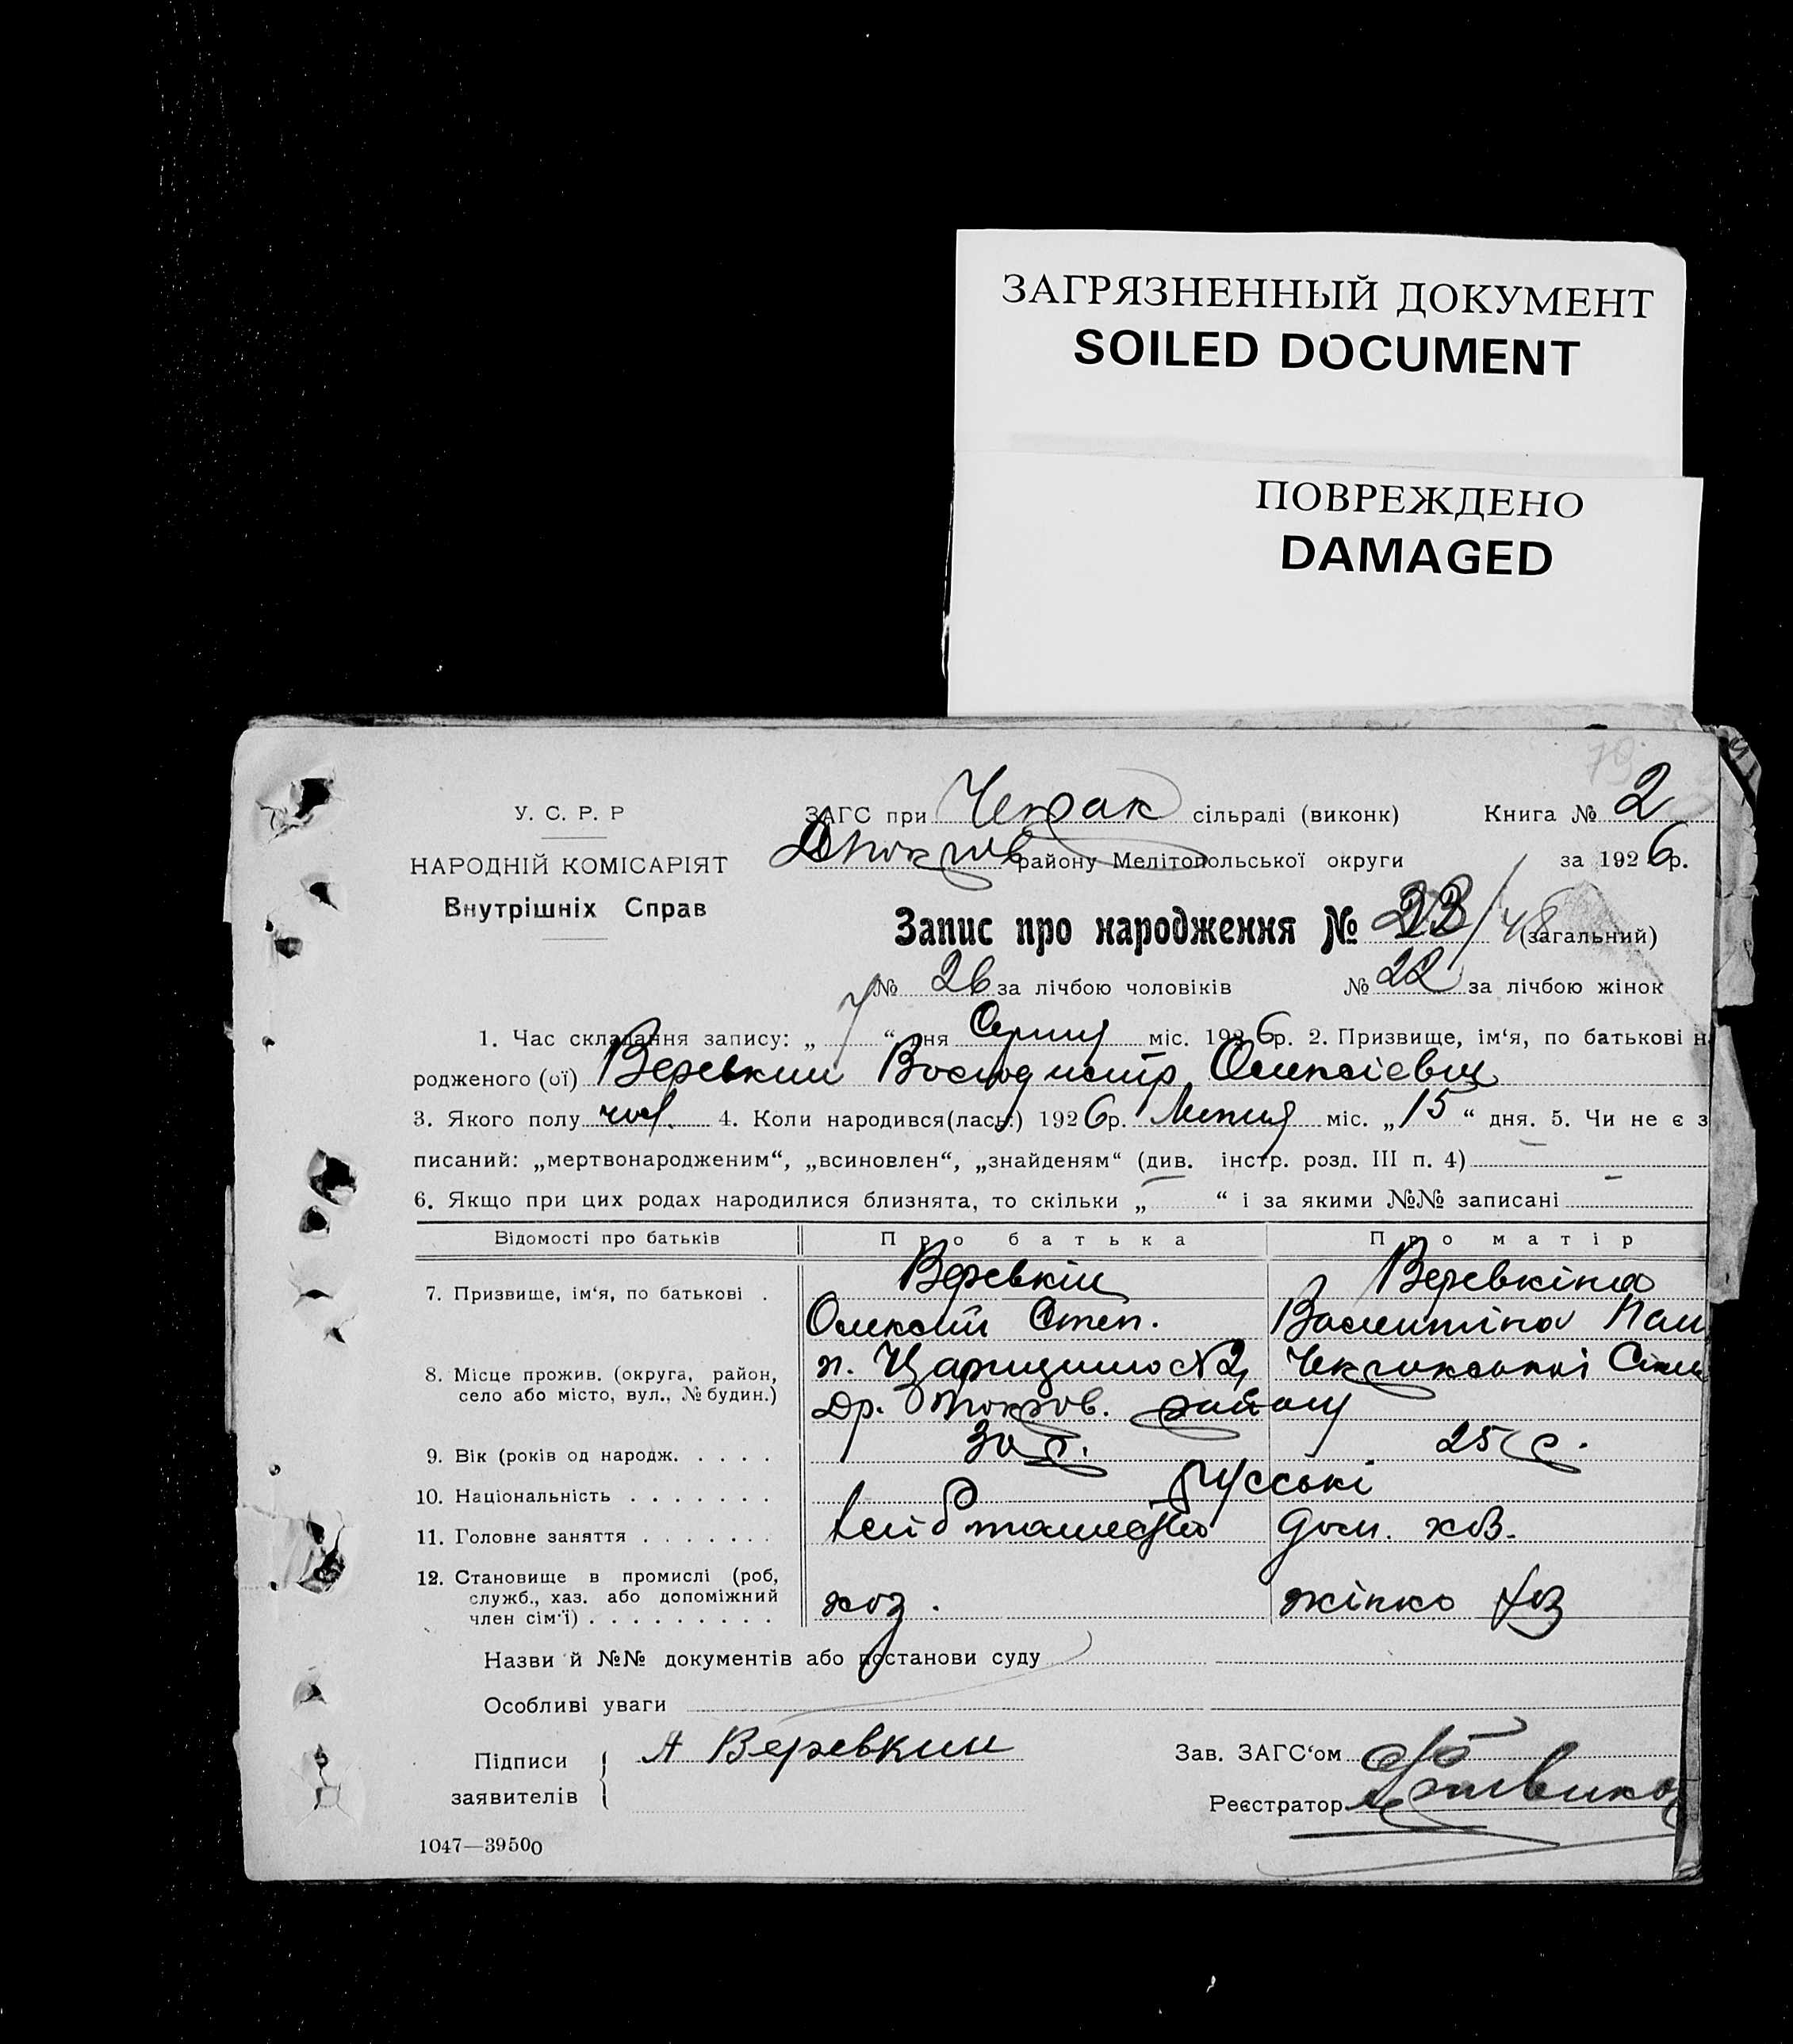 ЗАГРЯЗНЕННЫЙ ДОКУМЕНТ
SOILED DOCUMENT
ПОВРЕЖДЕНО
DAMAGED
79
У. С. Р. Р
ЗАГС при сільраді (виконк) Книга № 2
НАРОДНІЙ КОМІСАРІЯТ
району Мелітопольської округи за 1926р.
Внутрішніх Справ
Запис про народження № /48 (загальний)
№ 26 за лічбою чоловіків № 22 за лічбою жінок
1. Час складання запису: „ 7 “ дня Серпня міс. 1926р. 2. Призвище, ім‘я, по батькові н
родженого (ої) Веревкин Володимір Олексієвич
3. Якого полу чол. 4. Коли народився(лась:) 1926р. Липня міс. „15“ дня. 5. Чи не є з
писаний: „мертвонародженим“, „всиновлен“, „знайденям“ (див. інстр. розд. III п. 4) —
6. Якщо при цих родах народилися близнята, то скільки „ — “ і за якими №№ записані —
Відомості про батьків Про батька Про матір
7. Призвище, ім‘я, по батькові . Веревкін Веревкіна
Олексій Степ. Валентіна
8. Місце прожив. (округа, район, п. Царицино №2,
село або місто, вул., № будин.) району
9. Вік (років од народж. . . . . 30 р. 25 р.
10. Національність . . . . . . . русські
11. Головне заняття . . . . . . . дом. хоз.
12. Становище в промислі (роб,
служб., хаз. або допоміжний хоз. жінка хоз
член сім‘ї) . . . . . . . . .
Назви й №№ документів або постанови суду
Особливі уваги
Підписи А Веревкин Зав. ЗАГС‘ом
заявителів Реєстратор
1047—39500